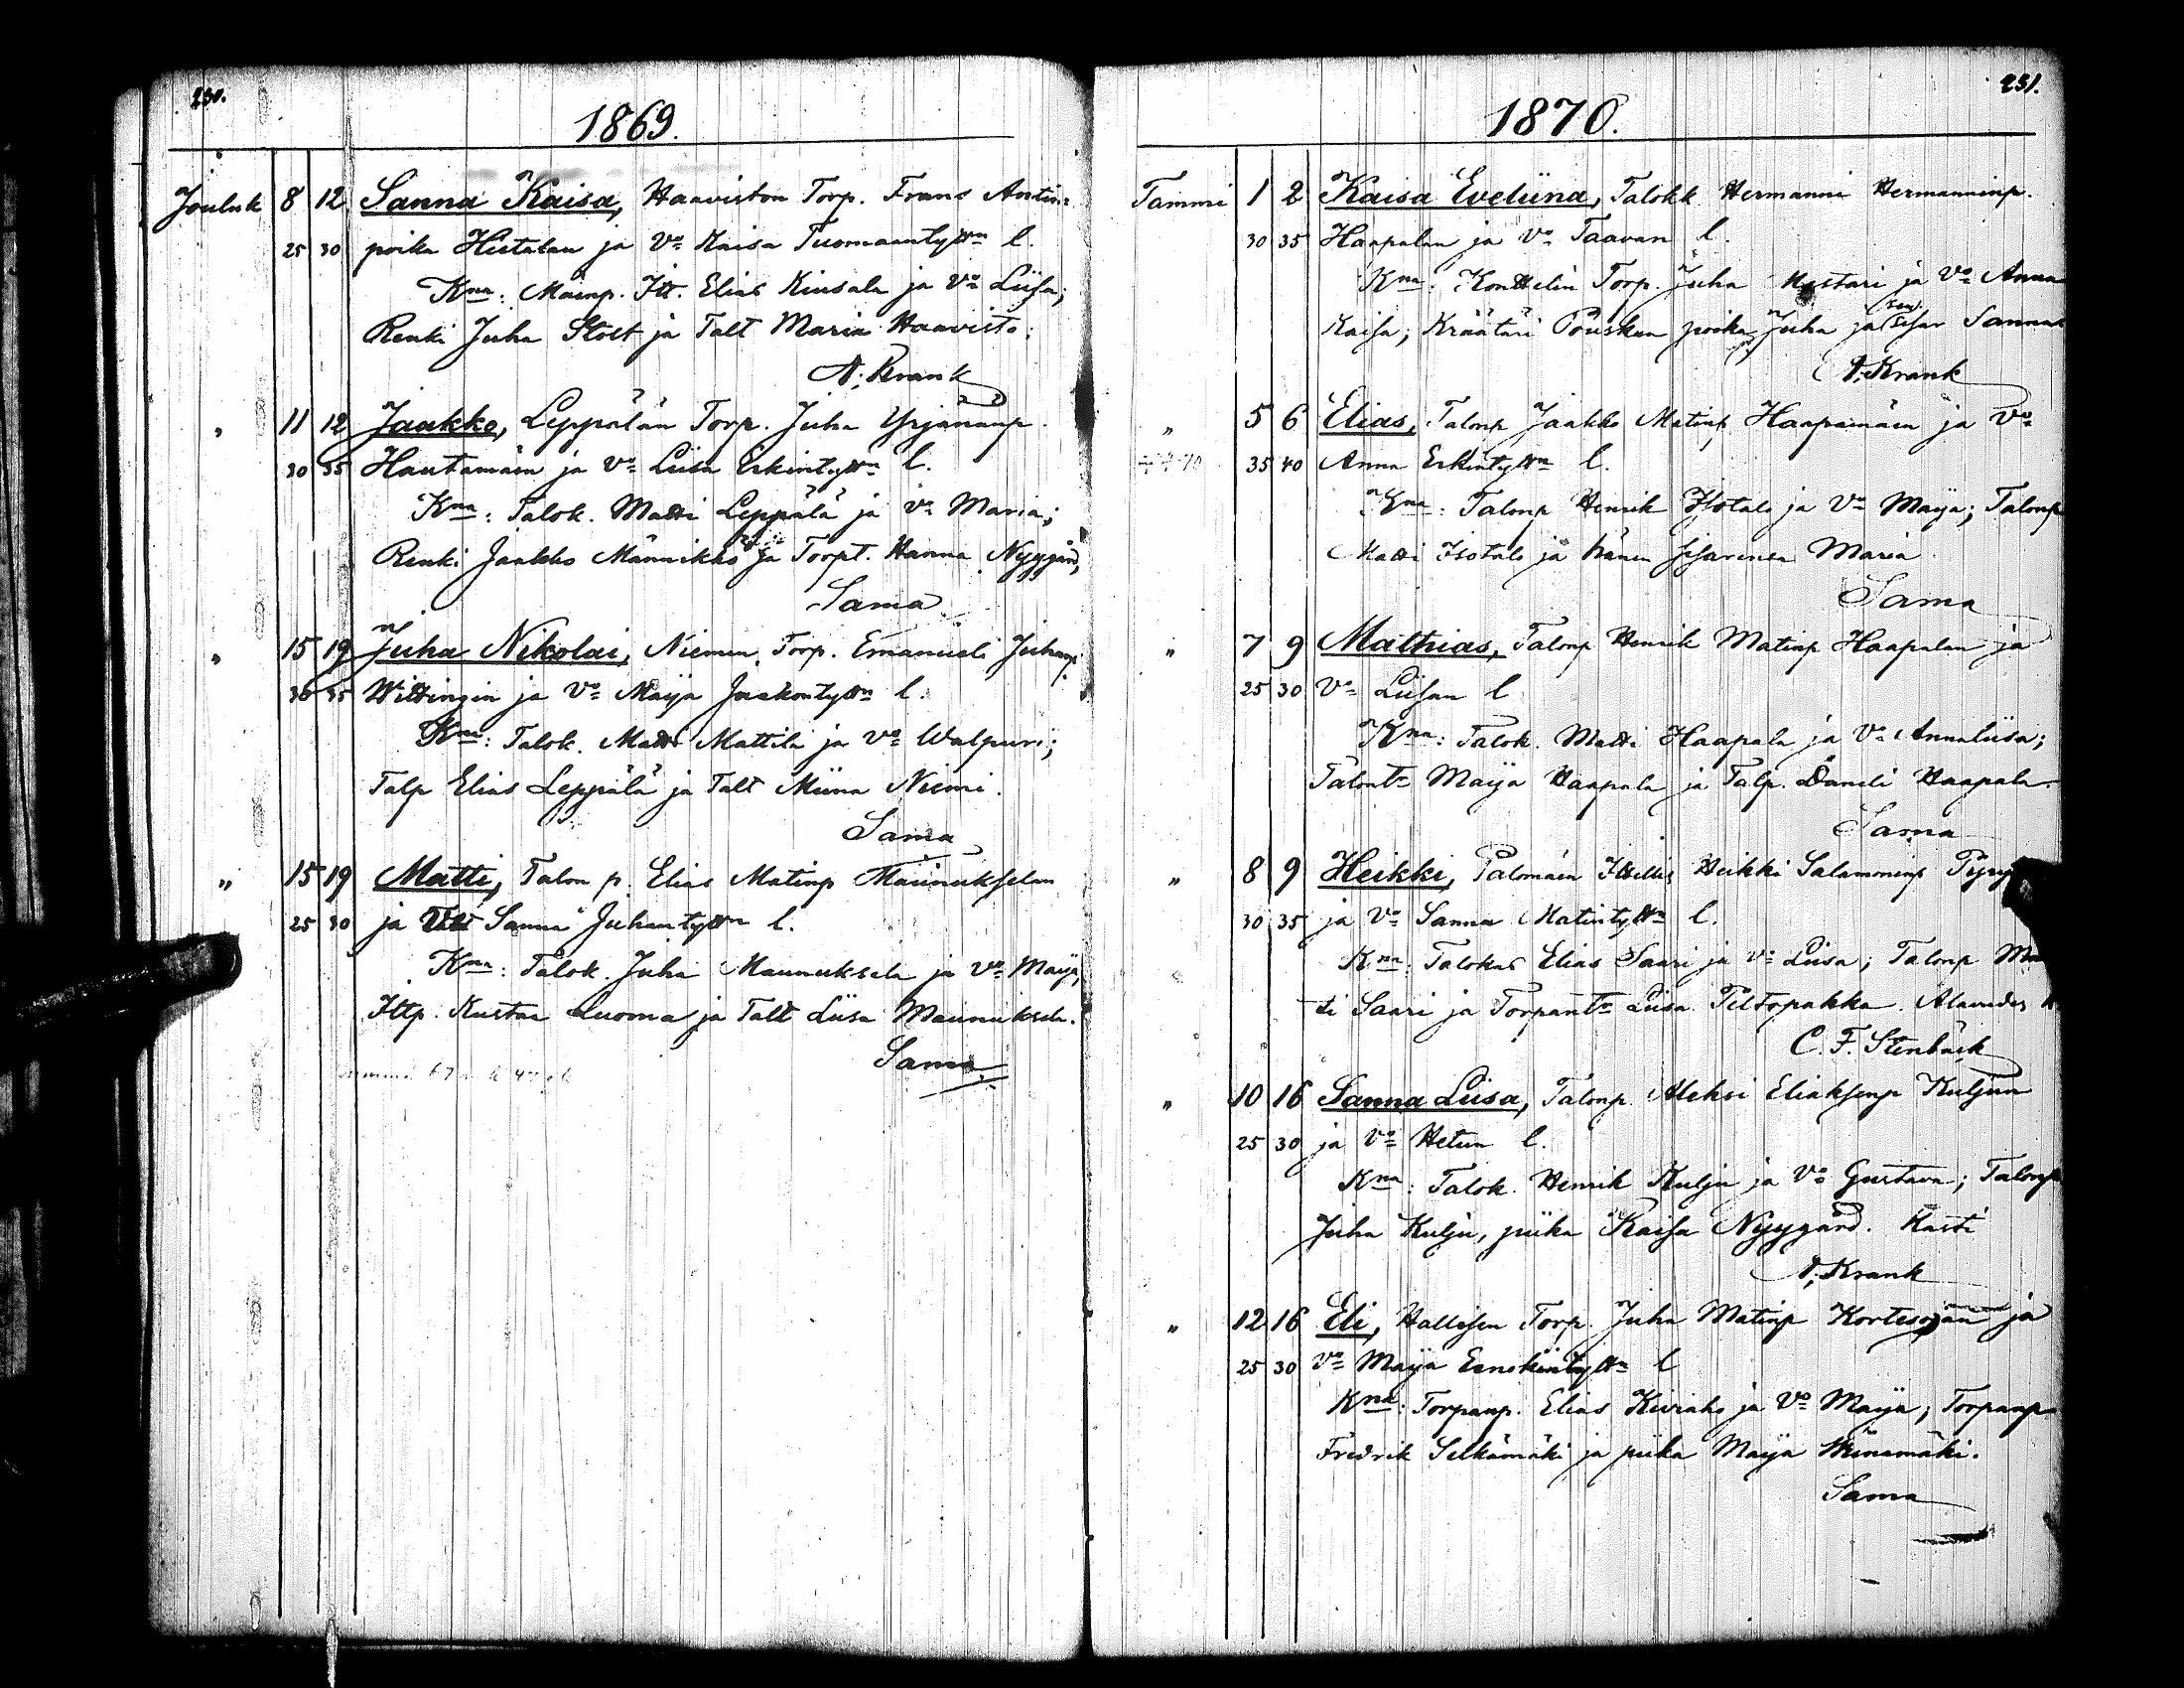 230.
1869.
Jouluk 8 12 Sanna Kaisa, Haaviston Torp. Frans Antin-
25 30 poika Hietalan ja Vo Kaisa Tuomaantyttn l.
Kna: Mäenp. Itt. Elias Kiusala ja Vo Liisa;
Renki Juha Stolt ja Talt Maria Haavisto.
A. Krank
" 11 12 Jaakko, Leppälän Torp. Juha Yrjänänp.
30 35 Hautamäen ja Vo Liisa Erkintyttn l.
Kna: Talok. Matti Leppälä ja Vo Maria;
Renki Jaakko Männikkö ja Torpt. Hanna Nygård,
Sama
" 15 19 Juha Nikolai, Niemen Torp. Emanueli Juhanp.
30 35 Wittingin ja Vo Maija Jaakontyttn l.
Kna: Talok. Matti Mattila ja Vo Walpuri;
Talp Elias Leppälä ja Talt Miina Niemi.
Sama
" 15 19 Matti, Talon p. Elias Matinp Maunukselan
25 30 ja Sanna Juhantyttn l.
Kna: Talok. Juha Maunuksela ja Vo Maija,
Ittp. Kustaa Luoma ja Talt Liisa Maunuksela.
Sama
231.
1870.
Tammi 1 2 Kaisa Eveliina, Talokk Hermanni Hermanninp.
30 35 Haapalan ja Vo Taavan l.
Kna: Torp. Juha Mestari ja Vo Anna
Kaisa; Kräätäri Pouskan poika Juha ja sen sisar Sanna
A. Krank
" 5 6 Elias, Talonp Jaakko Matinp Haapamäen ja Vo
35 40 Anna Erkintyttn l.
Kna: Talonp Henrik Isotalo ja Vo Maija; Talonp
Matti Isotalo ja hänen sisarensa Maria
Sama
" 7 9 Mathias, Talonp Henrik Matinp Haapalan ja
25 30 Vo Liisan l
Kna: Talok. Matti Haapala ja Vo Annaliisa;
Talont Maija Haapala ja Talp. Daneli Haapala.
Sama
" 8 9 Heikki, Palomäen Ittellis Heikki Salomoninp
30 35 ja Vo Sanna Matintyttn l.
Kna: Talokas Elias Saari ja Vo Liisa; Talonp Ma
ti Saari ja Torpant Liisa Peltopakka. Alavudes
C. F. Stenbäck
" 10 16 Sanna Liisa, Talonp. Aleksi Eliaksenp Kuljun
25 30 ja Vo Hetun l.
Kna: Talok. Henrik Kulju ja Vo Gustava; Talonp
Juha Kulju, piika Kaisa Nyygård. Kasti
A. Krank
" 12 16 Eli, Hallisen Torp. Juha Matinp Kortesojan ja
25 30 Vo Maija l
Kna: Torpanp. Elias Kiviaho ja Vo Maija; Torpanp
Fredrik Selkämäki ja piika Maija
Sama